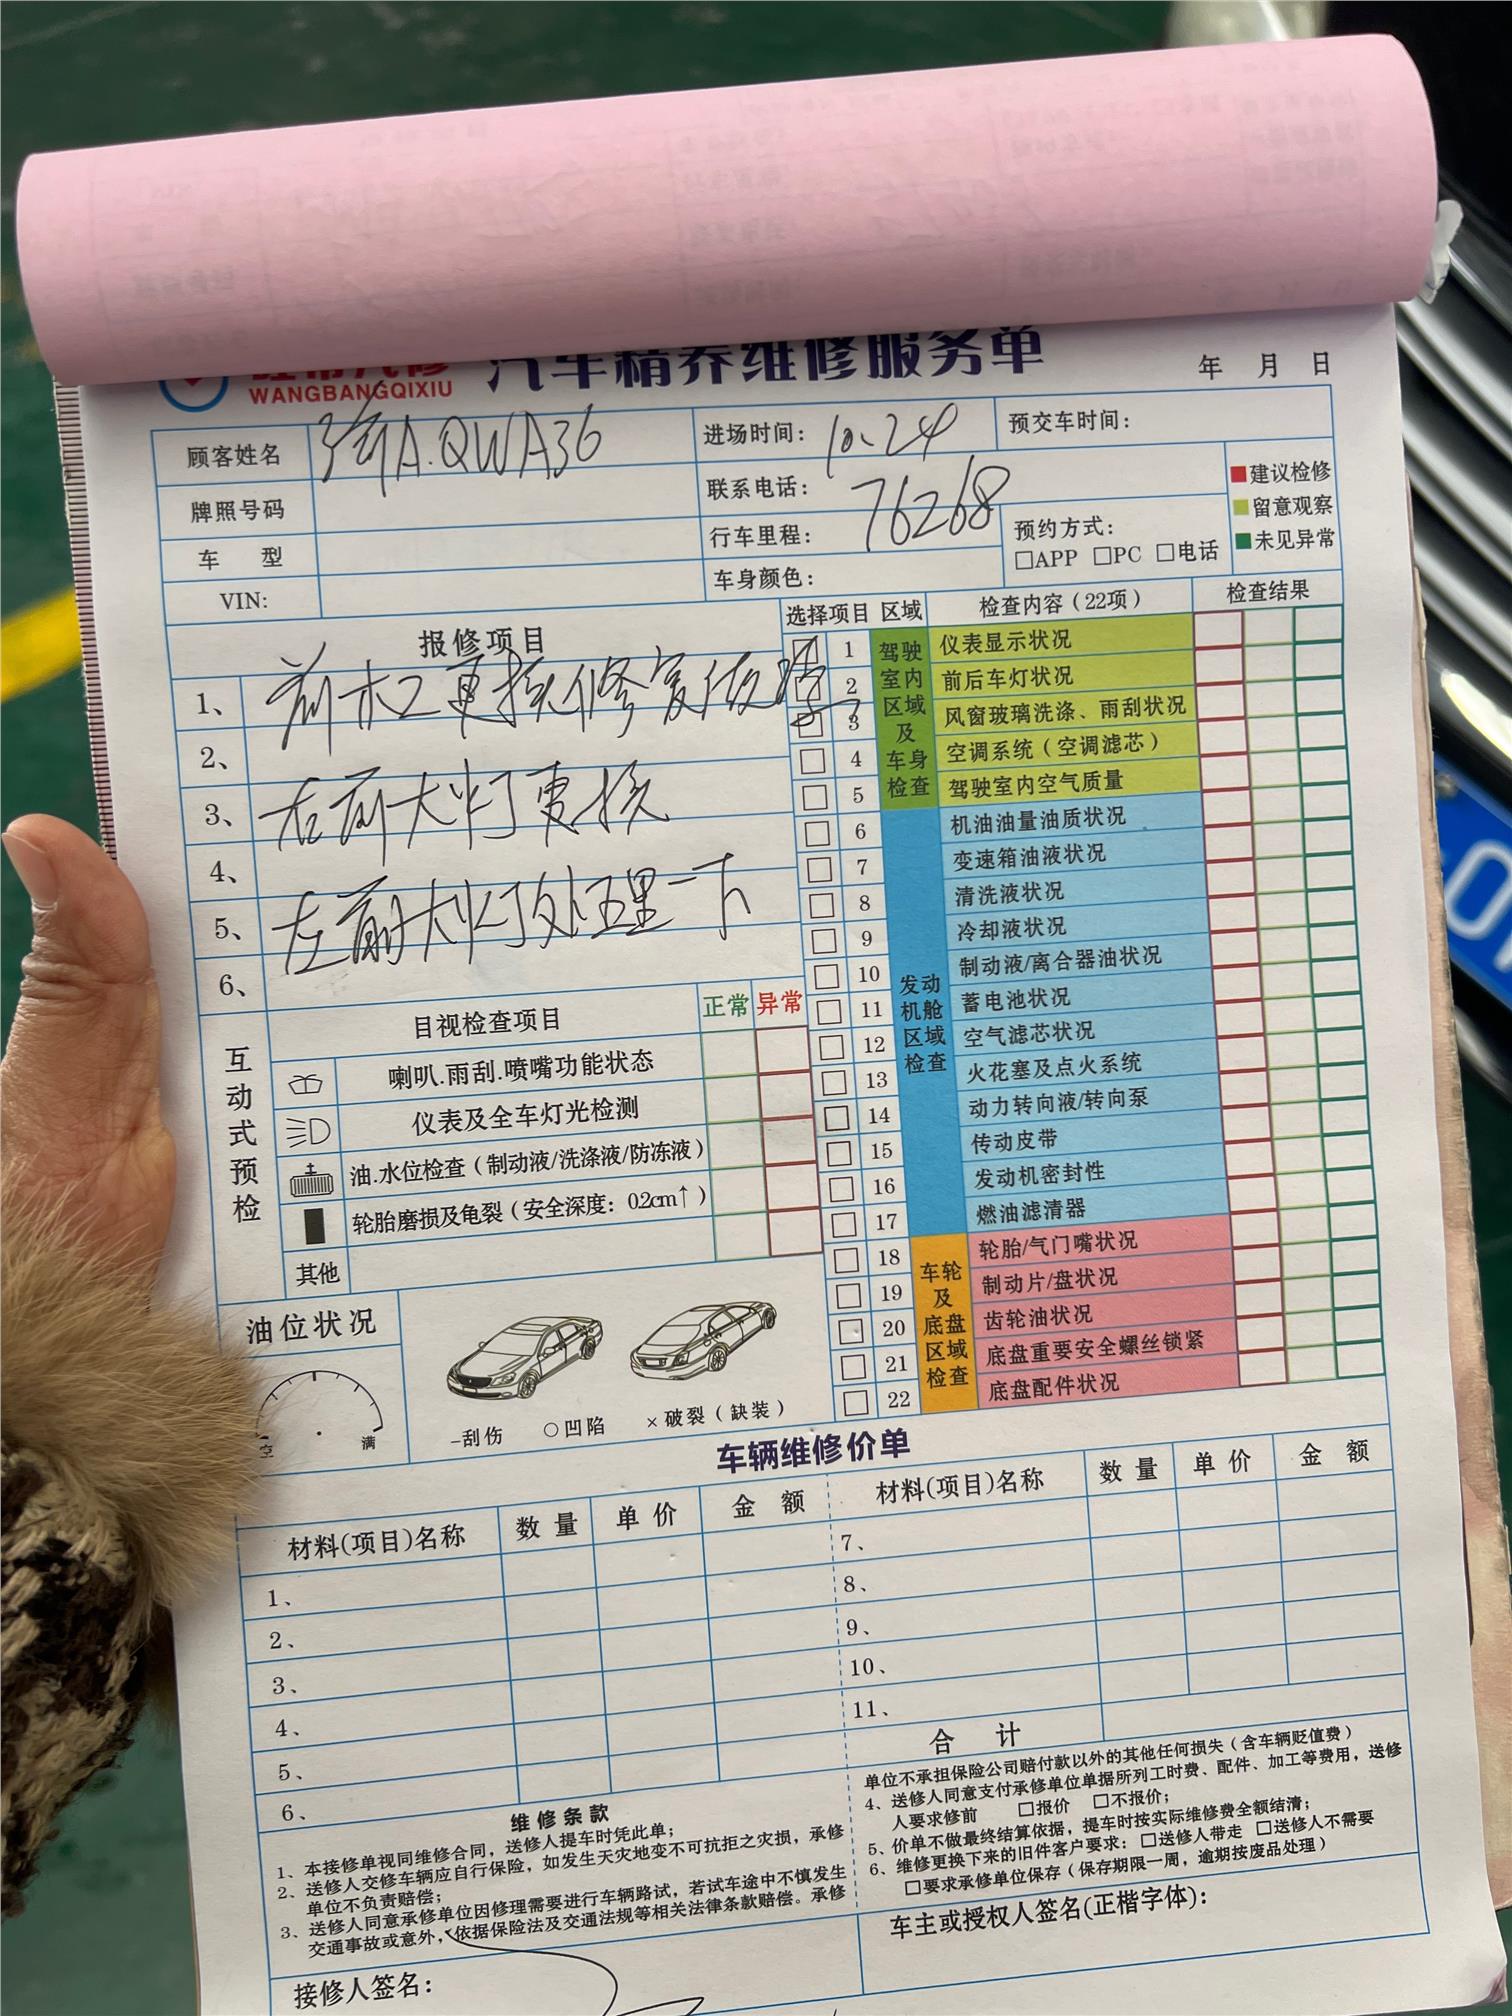 WANGBANGQIXIU 汽车精养维修服务单
年 月 日
顾客姓名 A.QWA36 进场时间: 10.24 预交车时间:
牌照号码 联系电话:
车 型 行车里程: 76268 预约方式:
□APP □PC □电话
VIN: 车身颜色:
建议检修
留意观察
未见异常
报修项目
1、 前杠更换修复做漆
2、
3、 右前大灯更换
4、
5、 左前大灯处理一下
6、
选择项目 区域 检查内容(22项) 检查结果
驾驶室内区域及车身检查
1 仪表显示状况
2 前后车灯状况
3 风窗玻璃洗涤、雨刮状况
4 空调系统(空调滤芯)
5 驾驶室内空气质量
发动机舱区域检查
6 机油油量油质状况
7 变速箱油液状况
8 清洗液状况
9 冷却液状况
10 制动液/离合器油状况
11 蓄电池状况
12 空气滤芯状况
13 火花塞及点火系统
14 动力转向液/转向泵
15 传动皮带
16 发动机密封性
17 燃油滤清器
车轮及底盘区域检查
18 轮胎/气门嘴状况
19 制动片/盘状况
20 齿轮油状况
21 底盘重要安全螺丝锁紧
22 底盘配件状况
互动式预检
目视检查项目 正常 异常
喇叭.雨刮.喷嘴功能状态
仪表及全车灯光检测
油.水位检查(制动液/洗涤液/防冻液)
轮胎磨损及龟裂(安全深度：0.2cm↑)
其他
油位状况
空 满
–刮伤 ○凹陷 ×破裂(缺装)
车辆维修价单
材料(项目)名称 数量 单价 金额 材料(项目)名称 数量 单价 金额
1、 7、
2、 8、
3、 9、
4、 10、
5、 11、
6、 合 计
维修条款
1、本接修单视同维修合同，送修人提车时凭此单；
2、送修人交修车辆应自行保险，如发生天灾地变不可抗拒之灾损，承修
单位不负责赔偿；
3、送修人同意承修单位因修理需要进行车辆路试，若试车途中不慎发生
交通事故或意外，依据保险法及交通法规等相关法律条款赔偿。承修
单位不承担保险公司赔付款以外的其他任何损失(含车辆贬值费)
4、送修人同意支付承修单位单据所列工时费、配件、加工等费用，送修
人要求修前 □报价 □不报价；
5、价单不做最终结算依据，提车时按实际维修费全额结清；
6、维修更换下来的旧件客户要求：□送修人带走 □送修人不需要
□要求承修单位保存(保存期限一周，逾期按废品处理)
接修人签名: 车主或授权人签名(正楷字体):